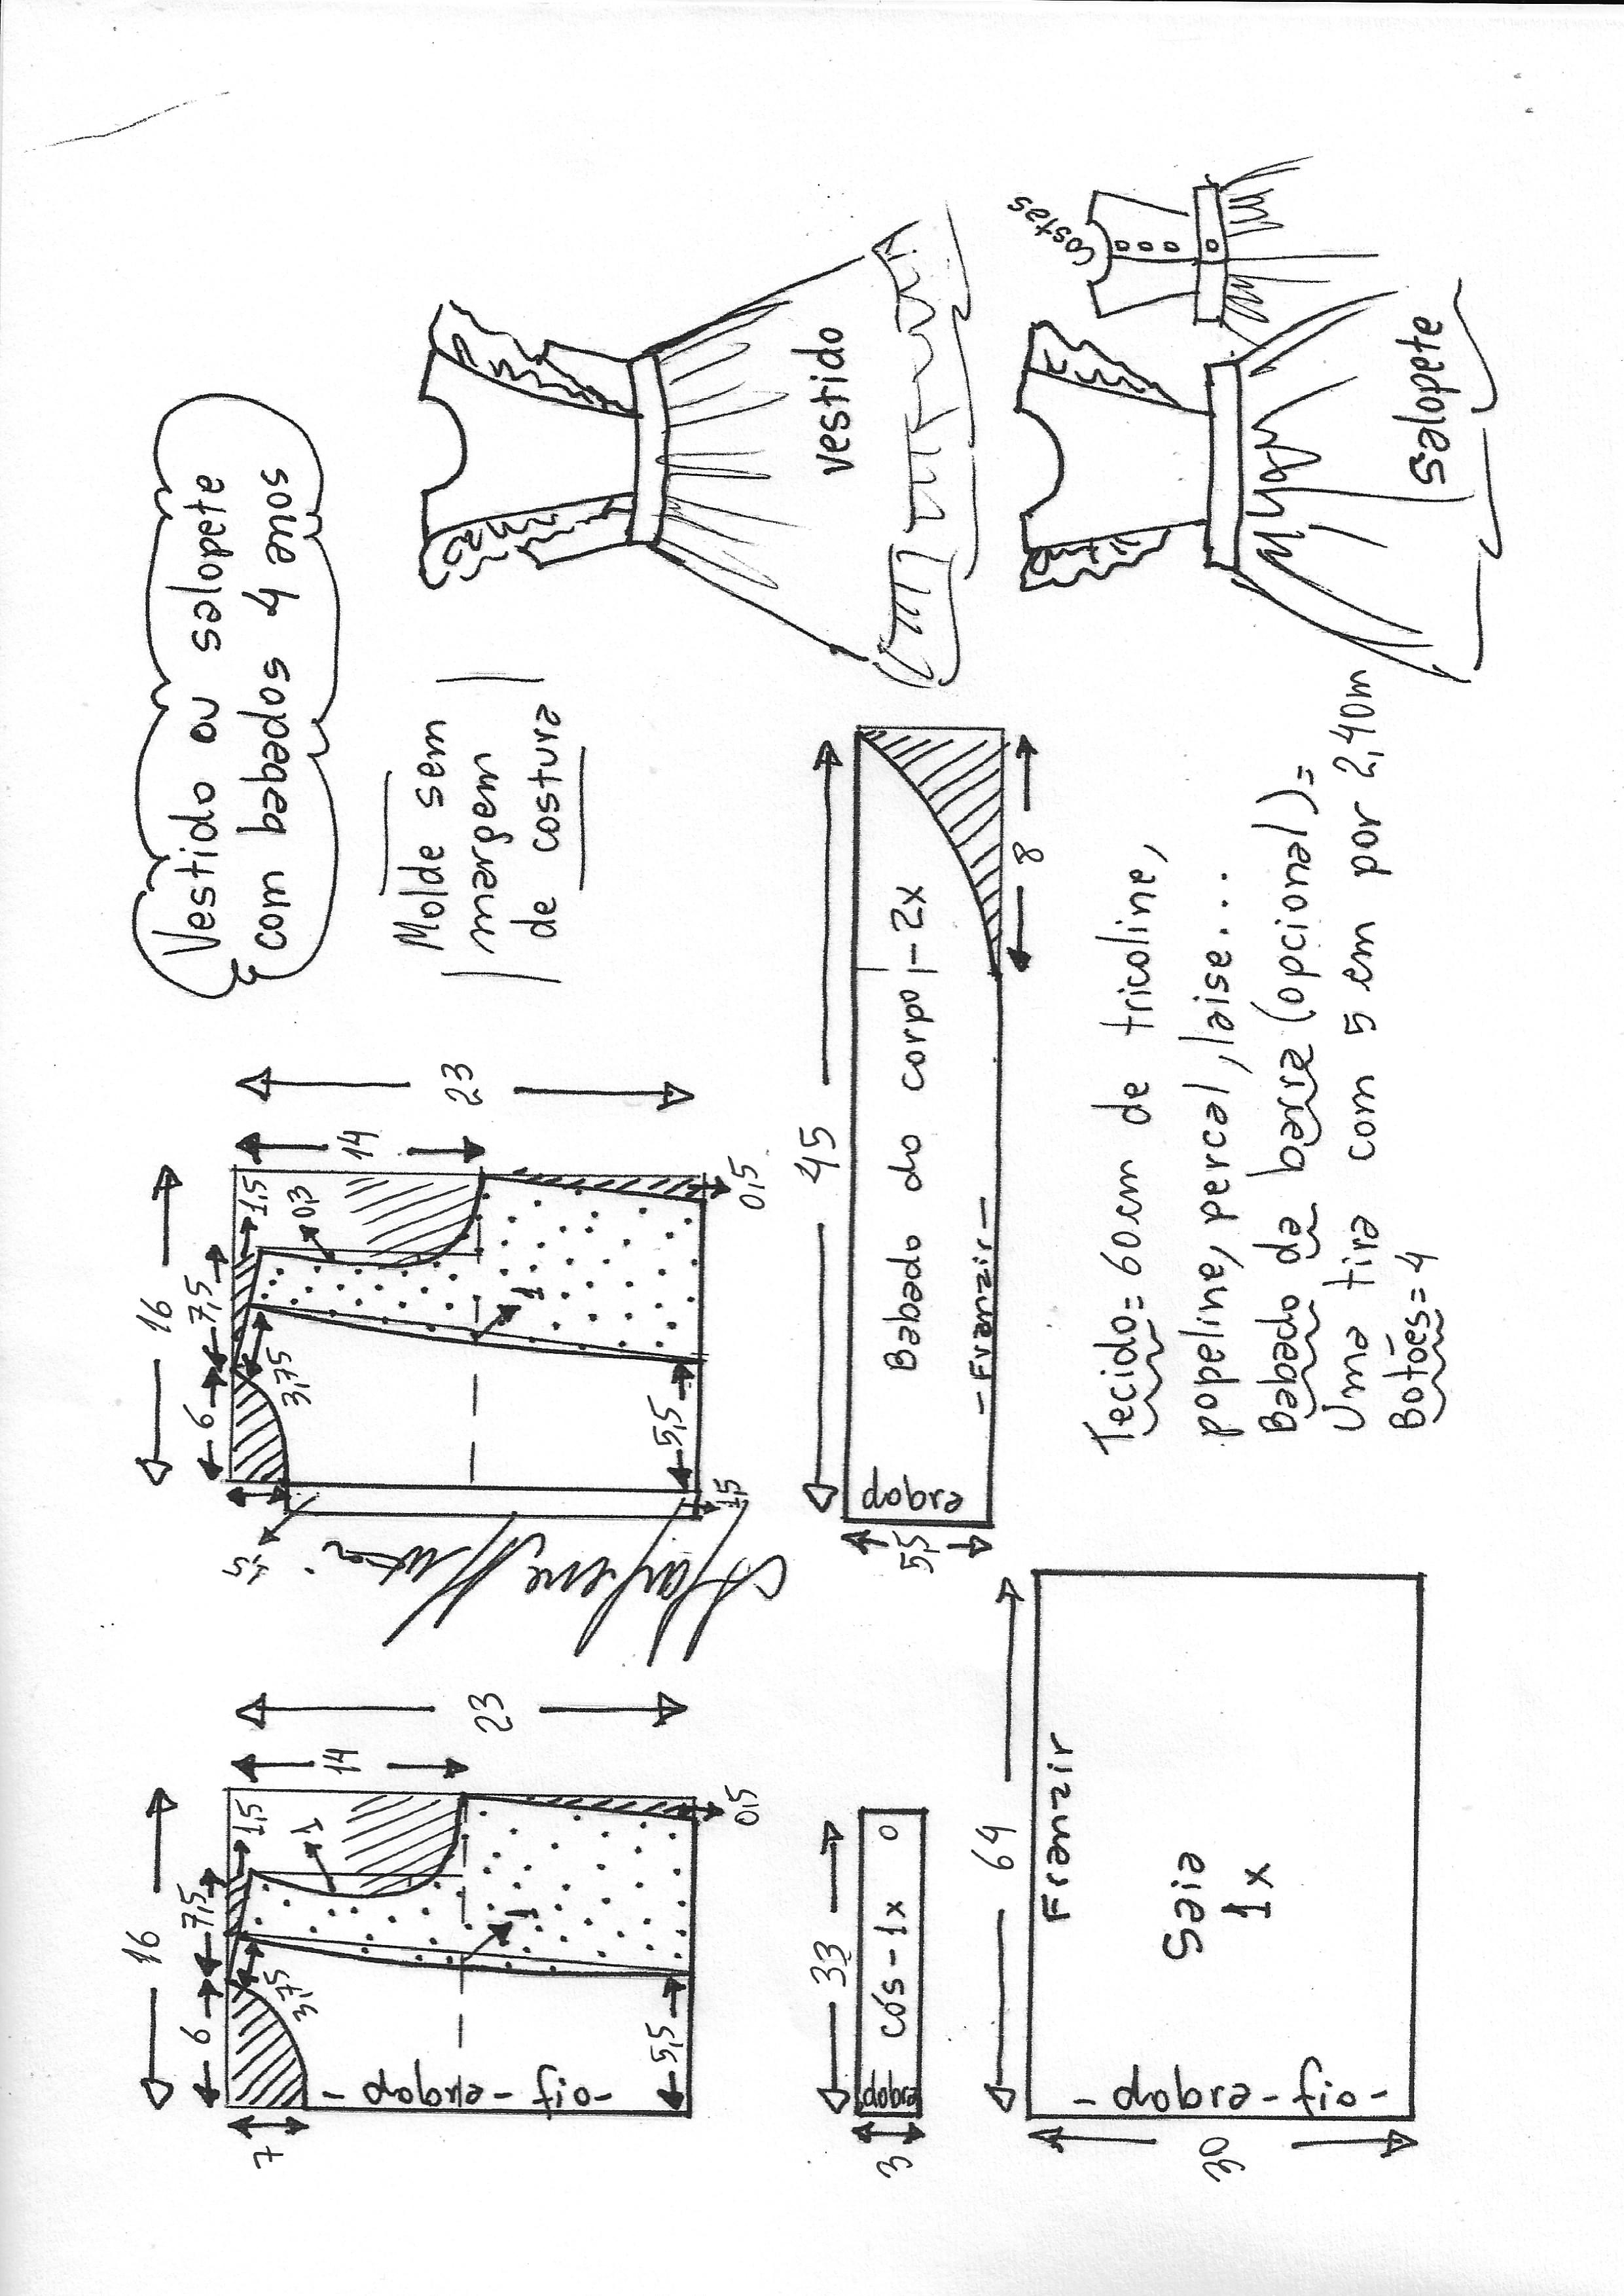 Vestido ou salopete
com babados 4 anos
Molde sem
margem
de costura
16
6
7,5
1,5
3,75
1
14
23
7
1
5,5
0,5
- dobra - fio -
16
6
7,5
1,5
3,75
0,3
14
23
4,5
1
5,5
0,5
1,5
vestido
costas
salopete
33
3
dobra
cós - 1x
45
5,5
dobra
Babado do corpo - 2x
- Franzir -
8
64
30
Franzir
Saia
1x
- dobra - fio -
Tecido = 60cm de tricoline,
popeline, percal, laise...
Babado da barra (opcional) =
Uma tira com 5 cm por 2,40m
Botões = 4